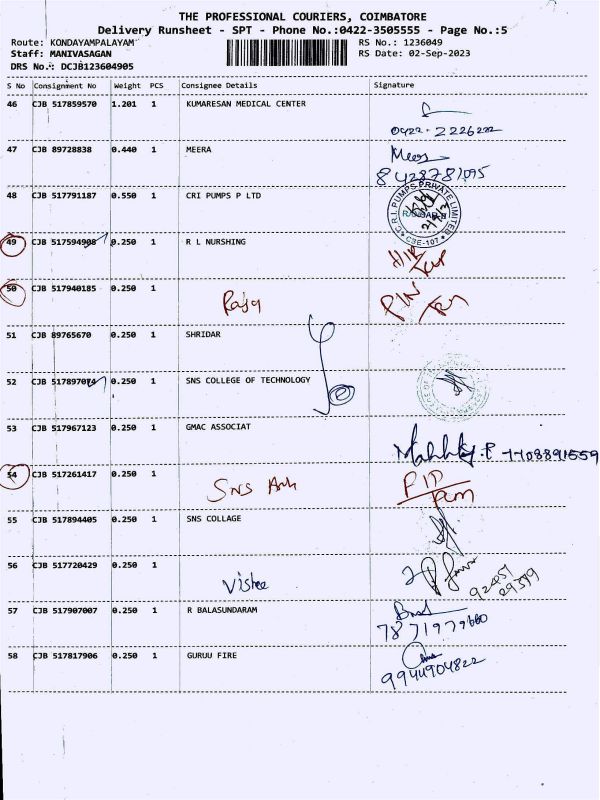 THE PROFESSIONAL COURIERS, COIMBATORE
Delivery Runsheet - SPT - Phone No.:0422-3505555 - Page No.:5
Route: KONDAYAMPALAYAM RS No.: 1236049
Staff: MANIVASAGAN RS Date: 02-Sep-2023
DRS No.: DCJB123604905
S No Consignment No Weight PCS Consignee Details Signature
46 CJB 517859570 1.201 1 KUMARESAN MEDICAL CENTER
0422-2226222
47 CJB 89728838 0.440 1 MEERA Meera
8428781095
48 CJB 517791187 0.550 1 CRI PUMPS P LTD
C.R.I. PUMPS PRIVATE LIMITED
CBE-107
49 CJB 517594908 0.250 1 R L NURSHING
50 CJB 517940185 0.250 1
Raja
51 CJB 89765670 0.250 1 SHRIDAR
52 CJB 517897074 0.250 1 SNS COLLEGE OF TECHNOLOGY
53 CJB 517967123 0.250 1 GMAC ASSOCIAT
7708891559
54 CJB 517261417 0.250 1
SNS
55 CJB 517894405 0.250 1 SNS COLLAGE
56 CJB 517720429 0.250 1
92457
29379
57 CJB 517907007 0.250 1 R BALASUNDARAM
7871979660
58 CJB 517817906 0.250 1 GURUU FIRE
9944904822